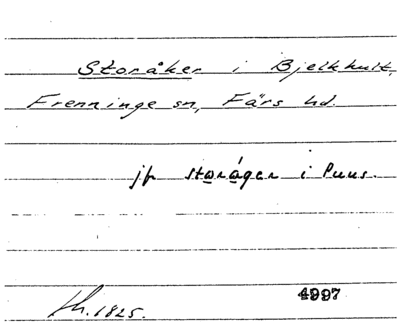 Storåker i Bjelkhult,
Frenninge sn, Färs hd.
jfr storåger i Puus.
4997
Lh. 1825.